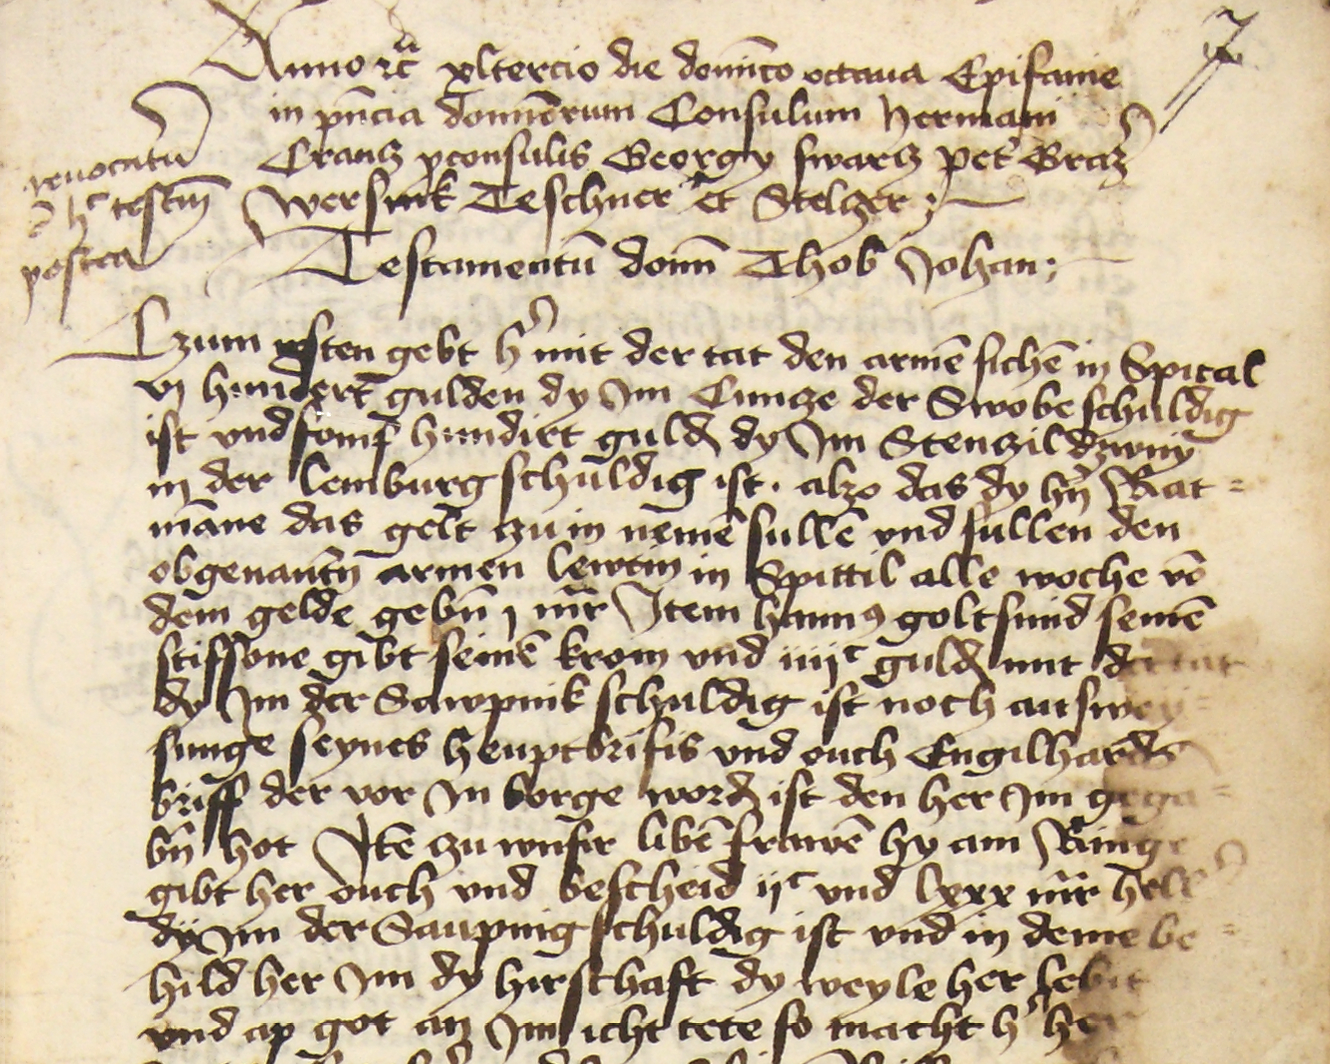 7
Anno rc xltercio die dominico octaua Epifanie
in pncia dominorum Consulum Hermani
Crancz pconsulis Georgy swarcz pet Graz
wersink Teschner et Stelczer :
reuocatu
e hc testm
postea
Testamentu domi Thob Johan:
Czum ersten gebt h mit der tat den arme siche in Spital
vj hundert gulden dy Im Cuncze der Swobe schuldig
ist vnd fomf hundirt guld dy Im Stenczil
in der lemburg schuldig ist . alzo das dy hn Rat=
mane das gelt zu in neme sulle vnd sullen den
obgenantn armen lewtin in Spittil alle woche vo
dem gelde gebn j mr Item hanns goltsmid seine
stiffsone gibt seine krom vnd iiijc guld mit der tat
dy Im der Sawpnik schuldig ist noch auswey=
sunge seynes heuptbrifis vnd ouch Engilhards
briff der vor In borge word ist den her Im gega=
bn hot Ite zu vnsir libe frawe hy am Ringe
gibt her ouch vnd bescheid ijc vnd lxxx mr hell
dy Im der Saupnig schuldig ist vnd in deme be=
hild her Im dy hirschaft dy weyle her lebit
vnd ap got an Im icht tete so macht h her